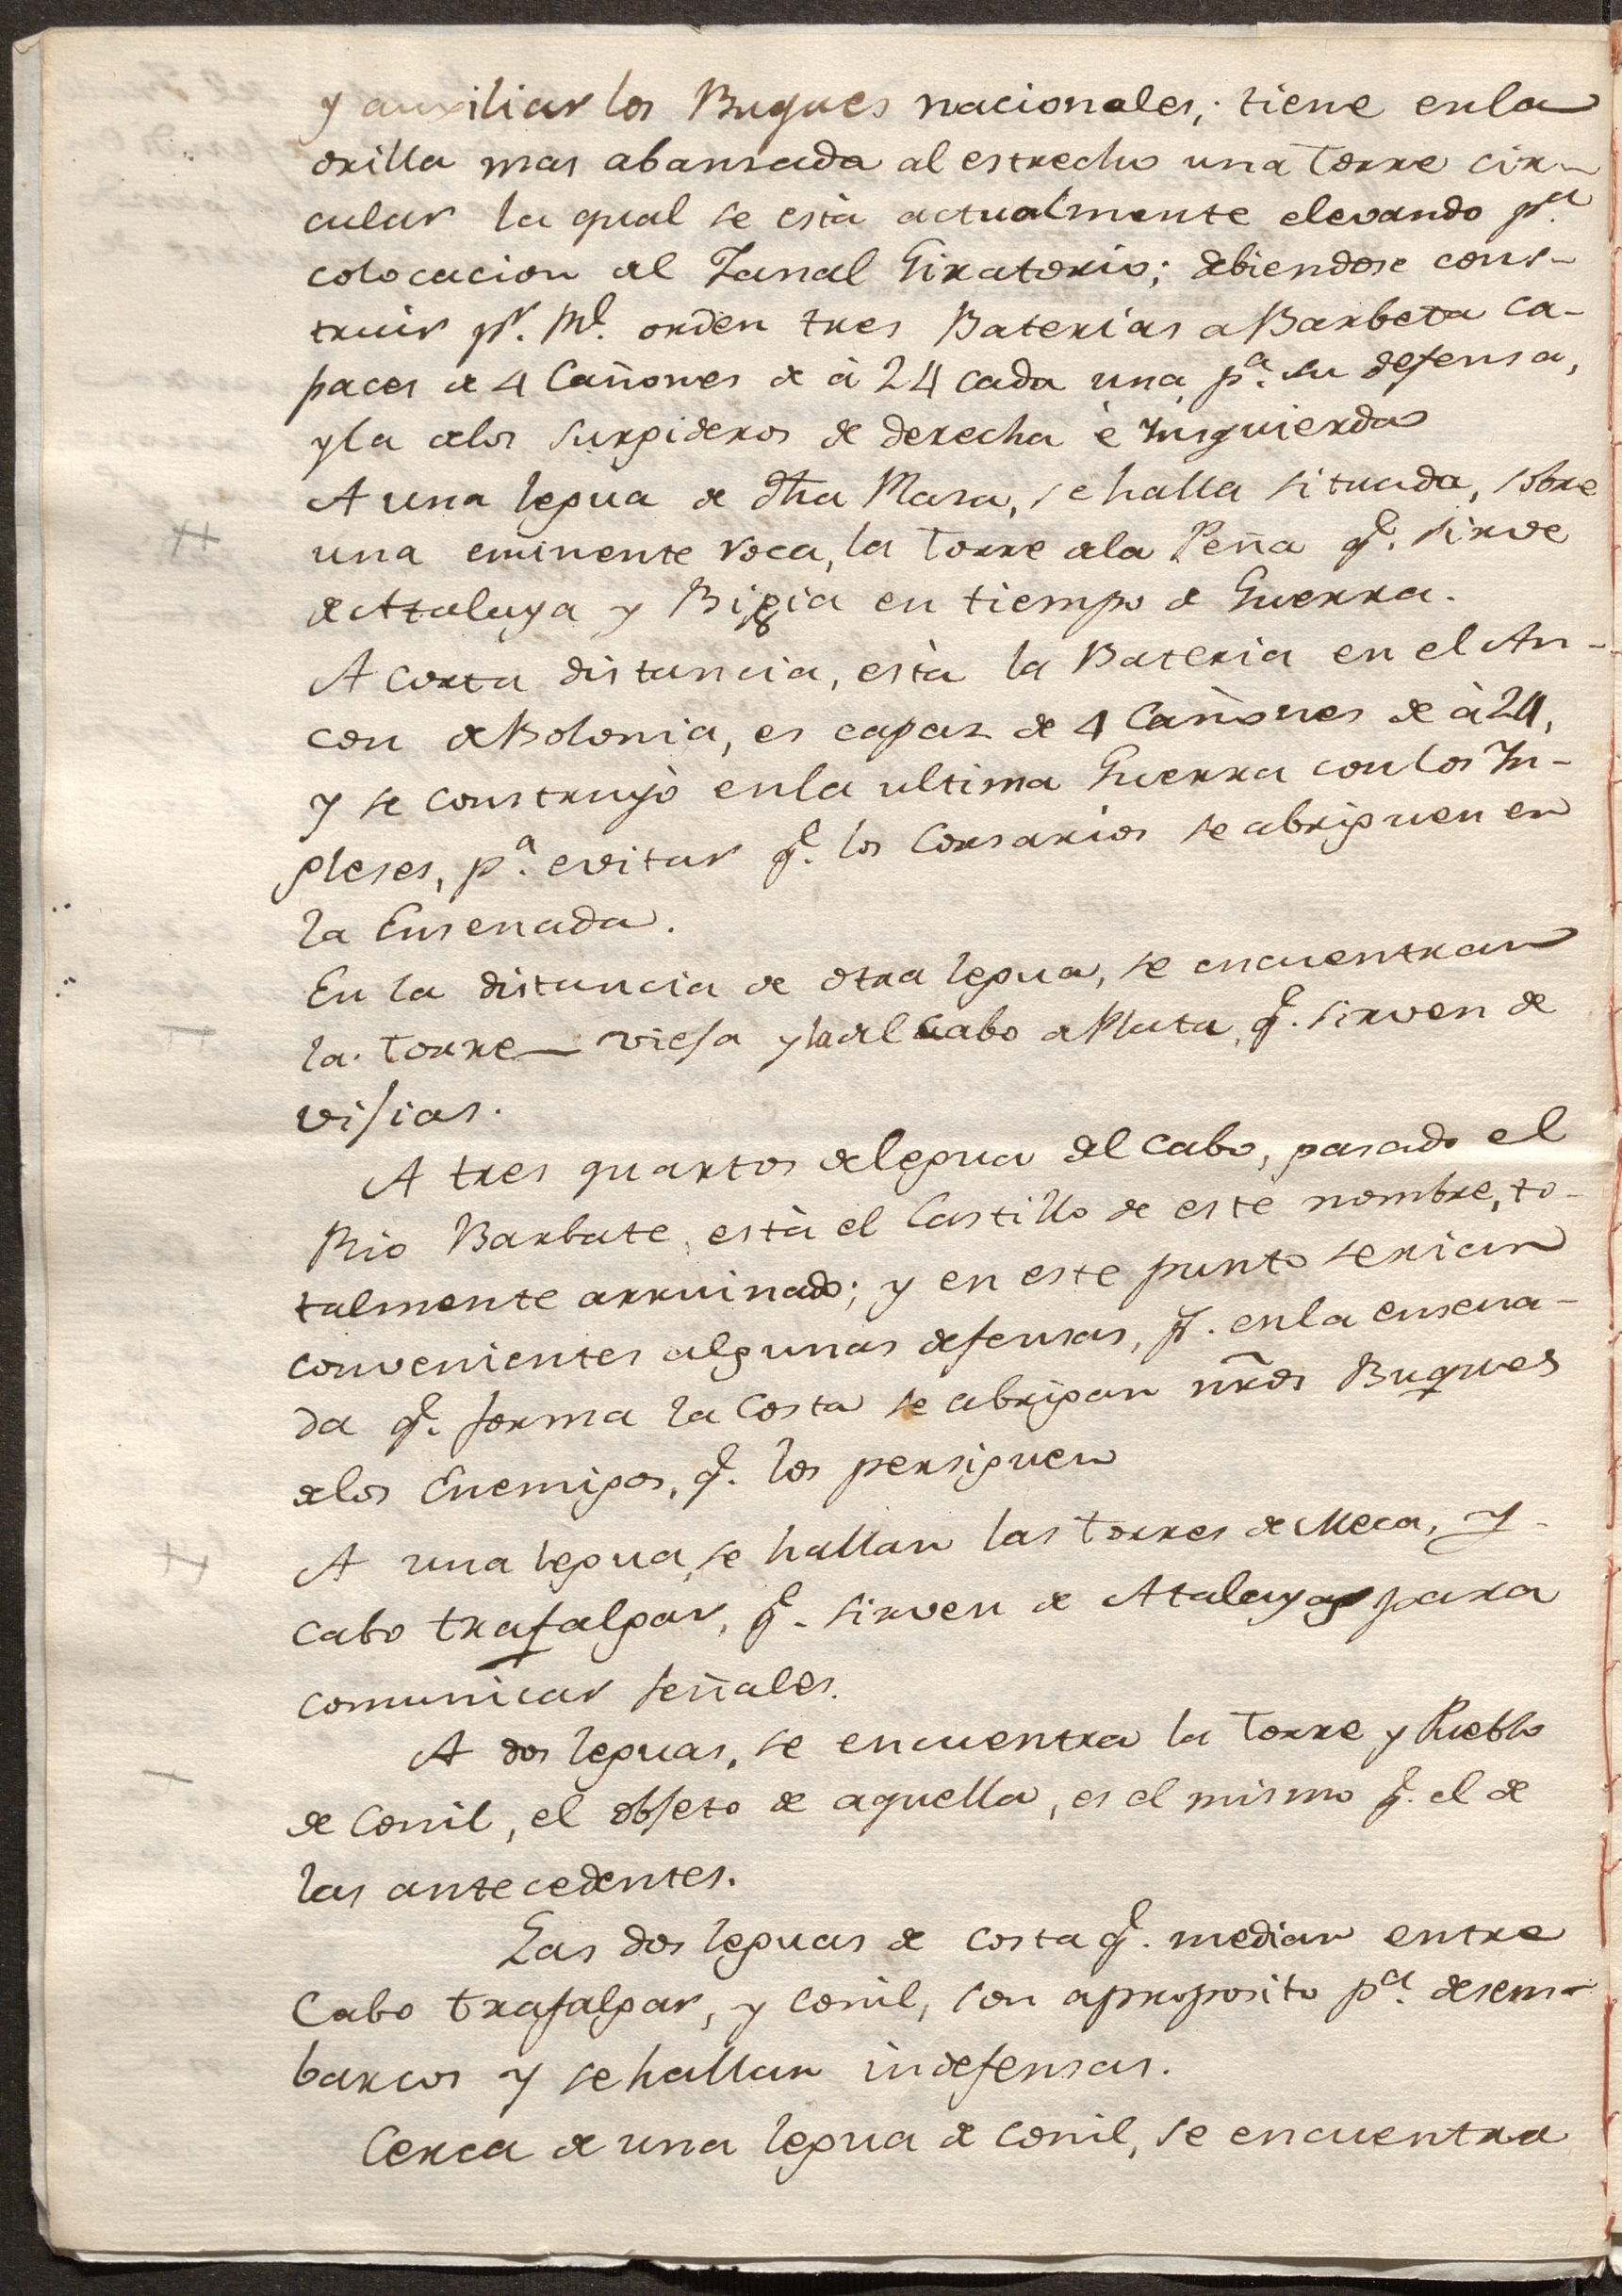 y auxiliar los Buques nacionales; tiene enla
orilla mas abansada al estrecho una Torre cir-
cular la qual se està actualmente elevando p.ª
colocacion del Fanal Giratorio; debiendose cons-
truir p.r Rl. orden tres Baterias a Barbeta ca-
paces de 4 Cañones de à 24 cada una, p.ª su defensa,
y la delos surgideros de derecha è Ysquierda
A una legua de dha Plasa, se halla situada, sobre
una eminente roca, la Torre dela Peña q.e sirve
de Atalaya y Bigia en tiempo de Guerra.
A corta distancia, està la Bateria en el An-
con de Bolonia, es capas de 4 Cañones de à 24,
y se construyò enla ultima Guerra con los Yn-
gleses, p.ª evitar q.e los Corsarios se abriguen en
la Ensenada.
En la distancia de otra legua, se encuentran
la Torre vieja y la del Cabo de Plata, q.e sirven de
vijias.
A tres quartos de legua del Cabo, pasado el
Rio Barbate, està el Castillo de este nombre, to-
talmente arruinado; y en este punto serian
convenientes algunas defensas, p.r enla ensena-
da q.e forma la Costa se abrigan nr̃os Buques
delos Enemigos, q.e los persiguen
A una legua, se hallan las Torres de Meca, y
Cabo trafalgar, q.e sirven de Atalayas para
comunicar señales.
A dos leguas, se encuentra la Torre y Pueblo
de Conil, el objeto de aquella, es el mismo q.e el de
las antecedentes.
Las dos leguas de costa q.e median entre
Cabo trafalgar, y Conil, son aproposito p.ª desem-
barcos y se hallan indefensas.
Cerca de una legua de Conil, se encuentra